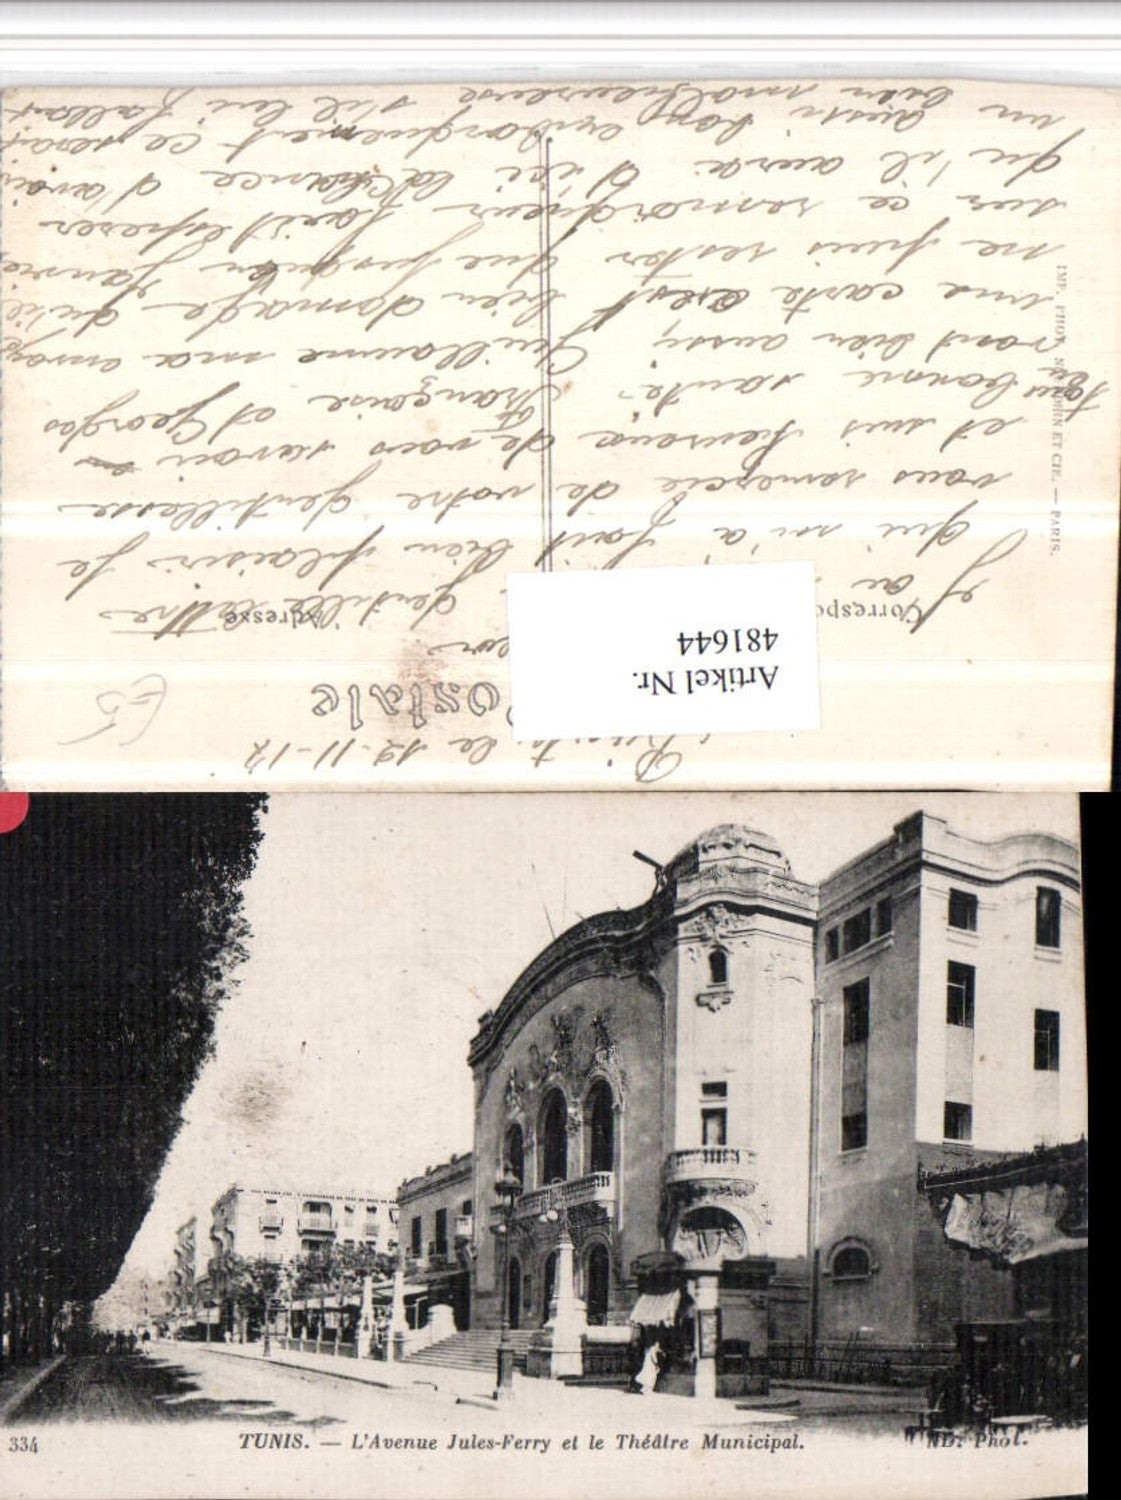 Bizerte le 12-11-17
Postale
E5
Artikel Nr.
481644
Correspo
Adresse
gentille lettre
qui m'a fait bien plaisir je
vous remercie de votre gentillesse
et suis heureux de vous savoir en
bonne santé Françoise et Georges
vont bien aussi Guillaume m'a envoyé
une carte c'est bien domage qu'il
ne puis rester que jusqu'en Janvier
sur ce remorqueur fait esperer
qu'il aura d'ici la chance d'avoir
un autre bon embarquement ce serait
bien malheureuse s'il lui fallait
IMP. PHOT. NEURDEIN ET CIE. — PARIS.
334
TUNIS. — L'Avenue Jules-Ferry et le Théâtre Municipal.
ND. Phot.